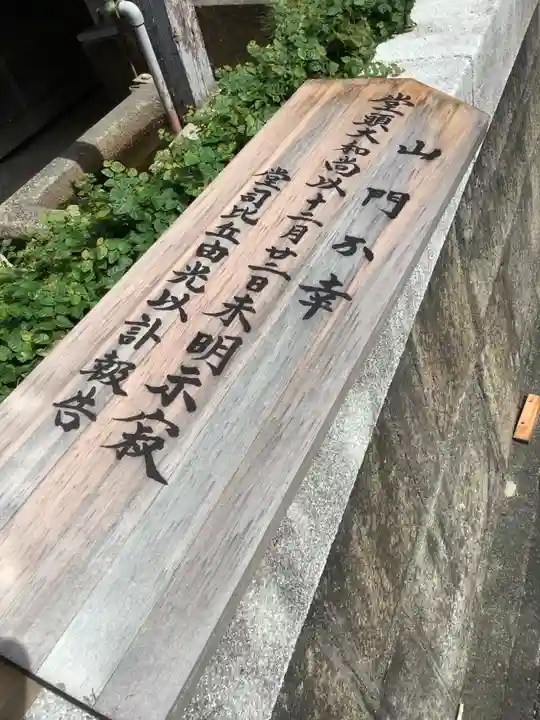 山門不幸
堂頭大和尚以十二月廿二日未明示寂
堂司比丘由光以訃報告